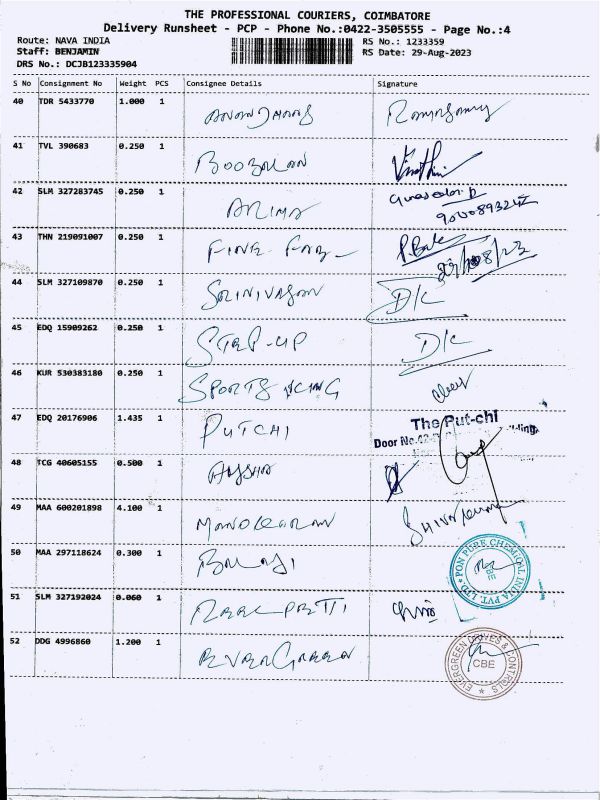 THE PROFESSIONAL COURIERS, COIMBATORE
Delivery Runsheet - PCP - Phone No.:0422-3505555 - Page No.:4
Route: NAVA INDIA RS No.: 1233359
Staff: BENJAMIN RS Date: 29-Aug-2023
DRS No.: DCJB123335904
S No Consignment No Weight PCS Consignee Details Signature
40 TDR 5433770 1.000 1
41 TVL 390683 0.250 1 BOOBALAN
42 SLM 327283745 0.250 1
43 THN 219091007 0.250 1 FINE FAB P.Bala
29/08/23
44 SLM 327109870 0.250 1 SRINIVASAN DK
45 EDQ 15909262 0.250 1 STEP-UP DK
46 KUR 530383180 0.250 1 SPORTS KING
47 EDQ 20176906 1.435 1 PUTCHI The Put-chi
Door No.
48 TCG 40605155 0.500 1
49 MAA 600201898 4.100 1 MANOHARAN
50 MAA 297118624 0.300 1 BALAJI PON PURE CHEMICAL INDIA PVT. LTD. CBE
51 SLM 327192024 0.060 1
52 DDG 4996860 1.200 1 EVERGREEN EVERGREEN DRIVES & CONTROLS CBE